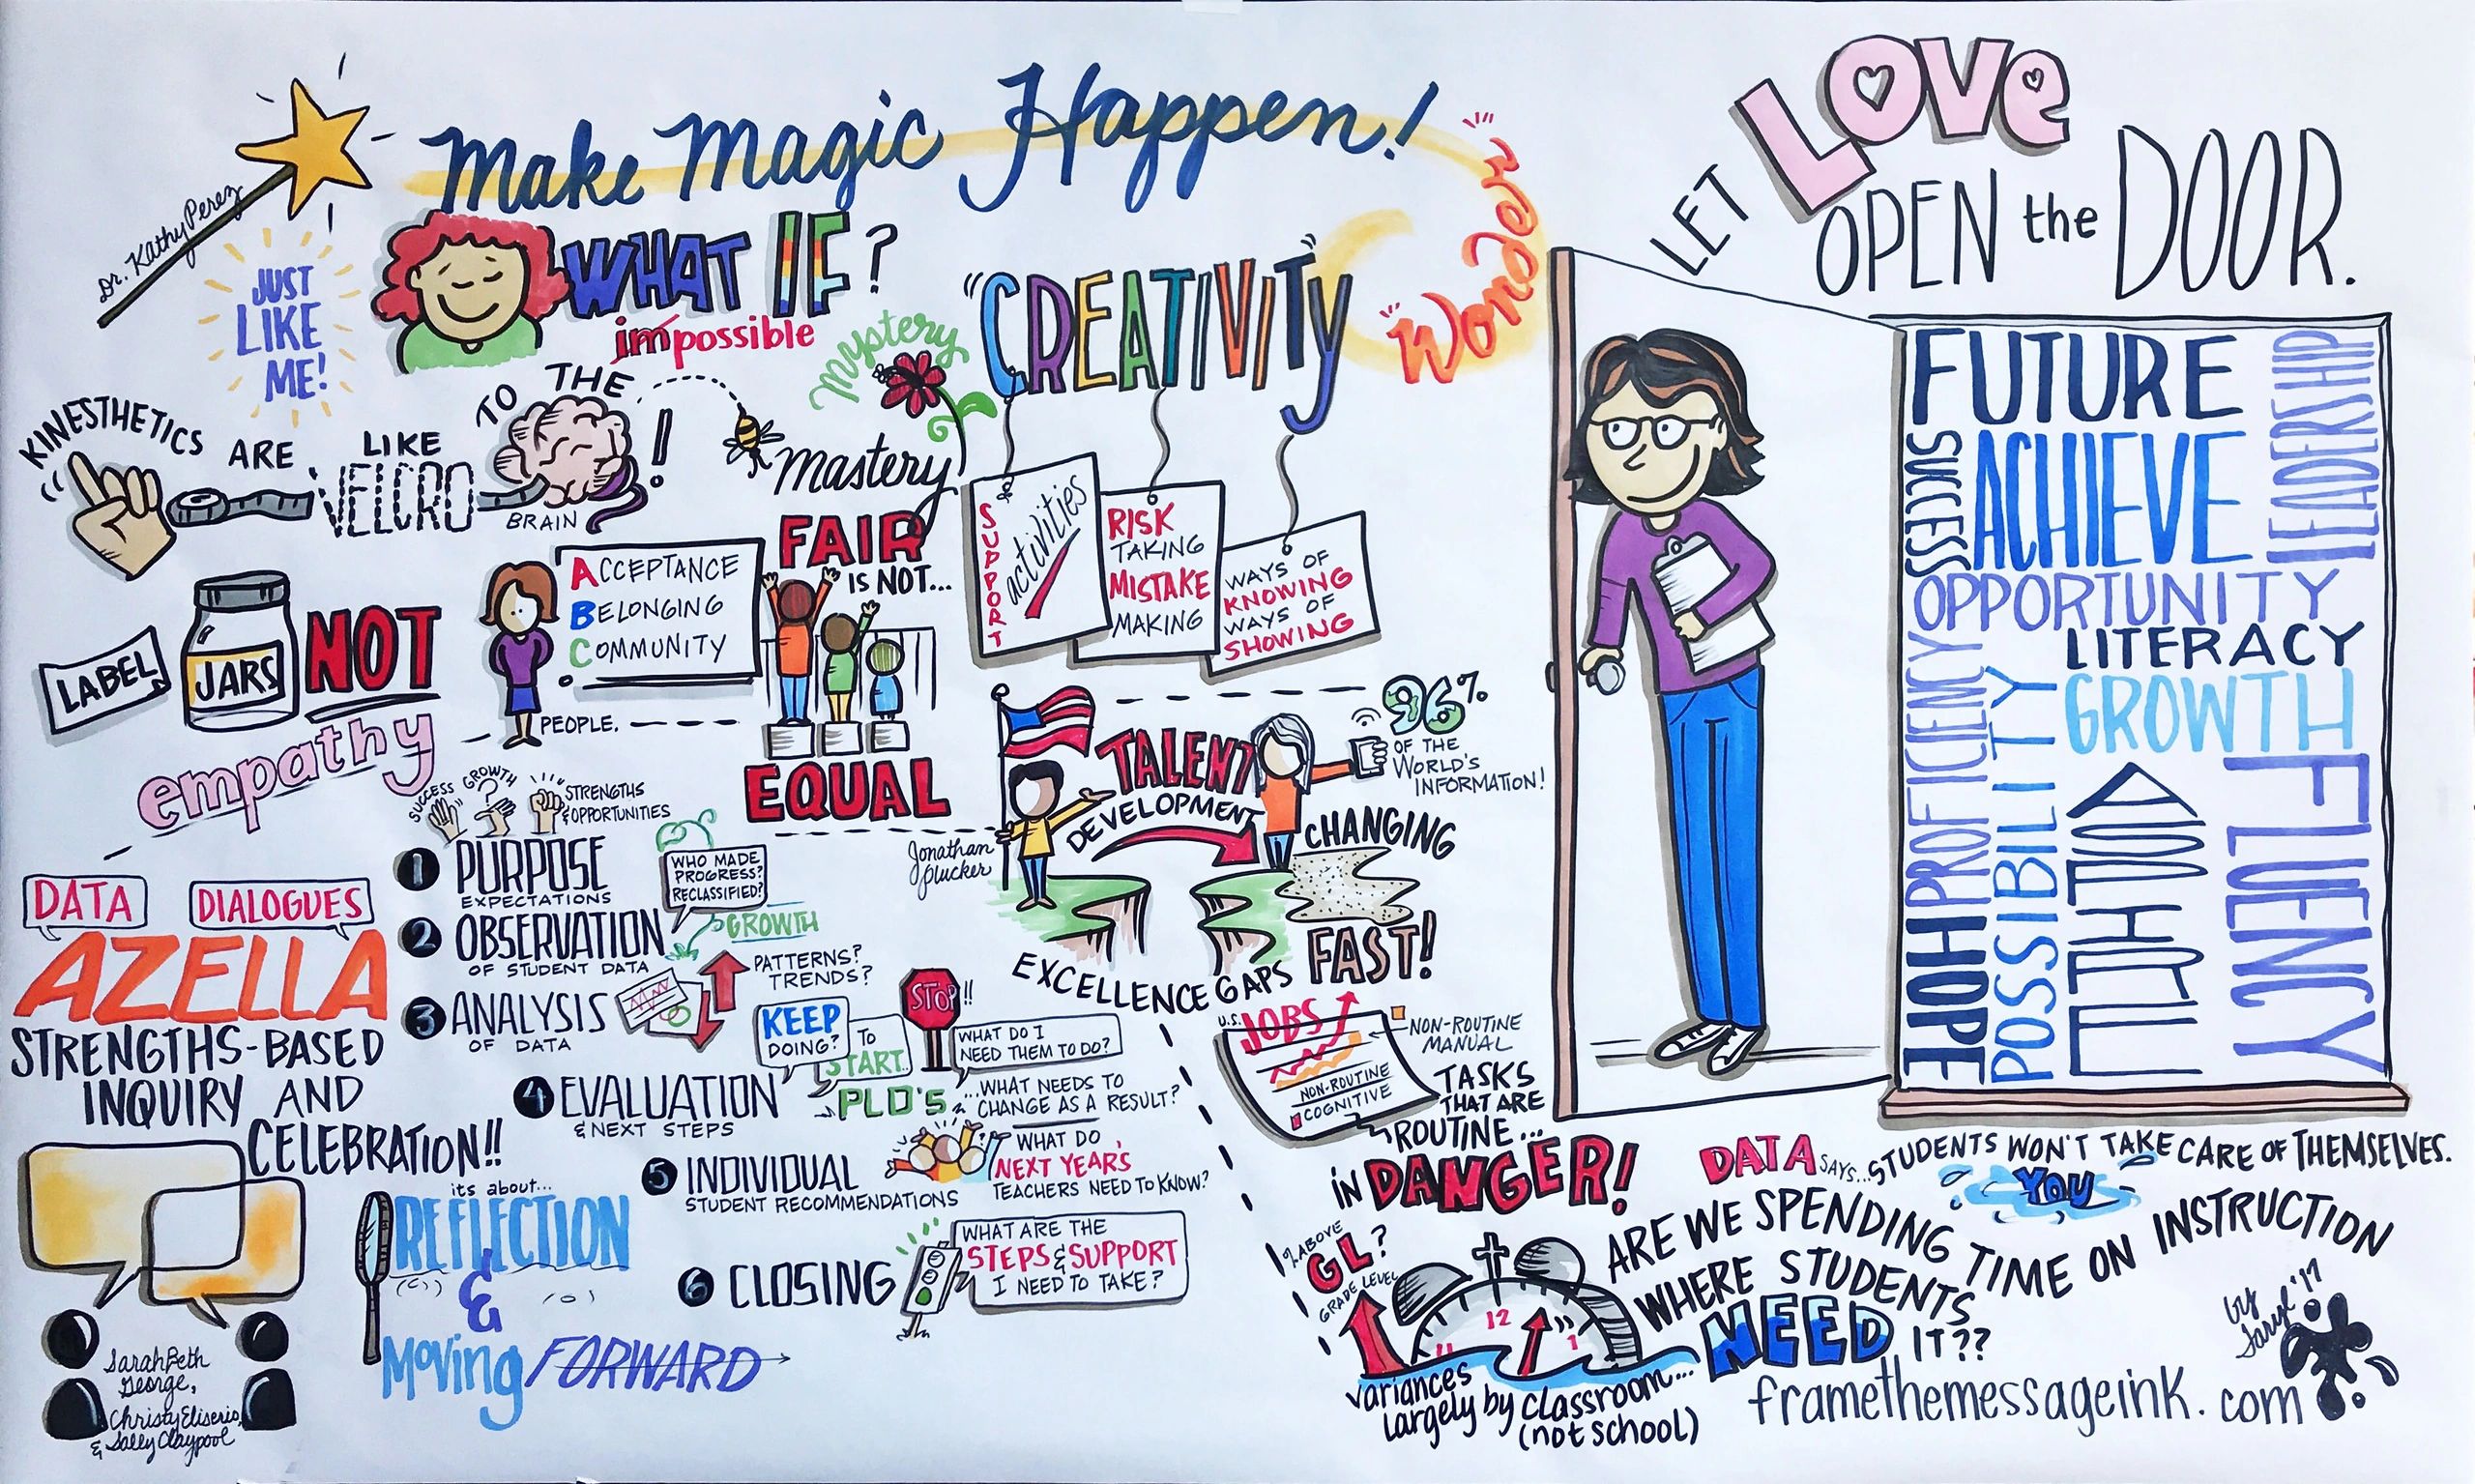 Dr. Kathy Perez
Make Magic Happen!
Wonder
JUST
LIKE
ME!
WHAT IF?
impossible
KINESTHETICS ARE LIKE VELCRO TO THE BRAIN!
mystery
mastery
"CREATIVITY"
SUPPORT
activities
RISK
TAKING
MISTAKE
MAKING
WAYS OF
KNOWING
WAYS OF
SHOWING
LABEL JARS NOT
PEOPLE.
empathy
ACCEPTANCE
BELONGING
COMMUNITY
FAIR
IS NOT...
EQUAL
Jonathan
Plucker
TALENT
DEVELOPMENT
96%
OF THE
WORLD'S
INFORMATION!
CHANGING
FAST!
EXCELLENCE GAPS
U.S. JOBS
NON-ROUTINE
MANUAL
NON-ROUTINE
COGNITIVE
TASKS
THAT ARE
ROUTINE...
IN DANGER!
DATA
DIALOGUES
AZELLA
STRENGTHS-BASED
INQUIRY AND
CELEBRATION!!
SarahBeth
George,
Christy Eliserio,
& Sally Claypool
SUCCESS
GROWTH
?
STRENGTHS
& OPPORTUNITIES
1 PURPOSE
EXPECTATIONS
2 OBSERVATION
OF STUDENT DATA
WHO MADE
PROGRESS?
RECLASSIFIED?
GROWTH
3 ANALYSIS
OF DATA
PATTERNS?
TRENDS?
4 EVALUATION
& NEXT STEPS
KEEP
DOING?
TO
START..
STOP!!
WHAT DO I
NEED THEM TO DO?
PLD'S
...WHAT NEEDS TO
CHANGE AS A RESULT?
5 INDIVIDUAL
STUDENT RECOMMENDATIONS
WHAT DO
NEXT YEAR'S
TEACHERS NEED TO KNOW?
6 CLOSING
WHAT ARE THE
STEPS & SUPPORT
I NEED TO TAKE?
its about...
REFLECTION
&
Moving FORWARD
LET LOVE
OPEN the DOOR.
FUTURE
LEADERSHIP
SUCCESS
ACHIEVE
OPPORTUNITY
LITERACY
GROWTH
PROFICIENCY
POSSIBILITY
ASPIRE
FLUENCY
HOPE
DATA SAYS...STUDENTS WON'T TAKE CARE OF THEMSELVES.
YOU
ARE WE SPENDING TIME ON INSTRUCTION
WHERE STUDENTS
NEED IT??
% ABOVE
GL?
GRADE LEVEL
11 12 1
variances
largely by classroom...
(not school)
by
Taryl '17
framethemessageink.com